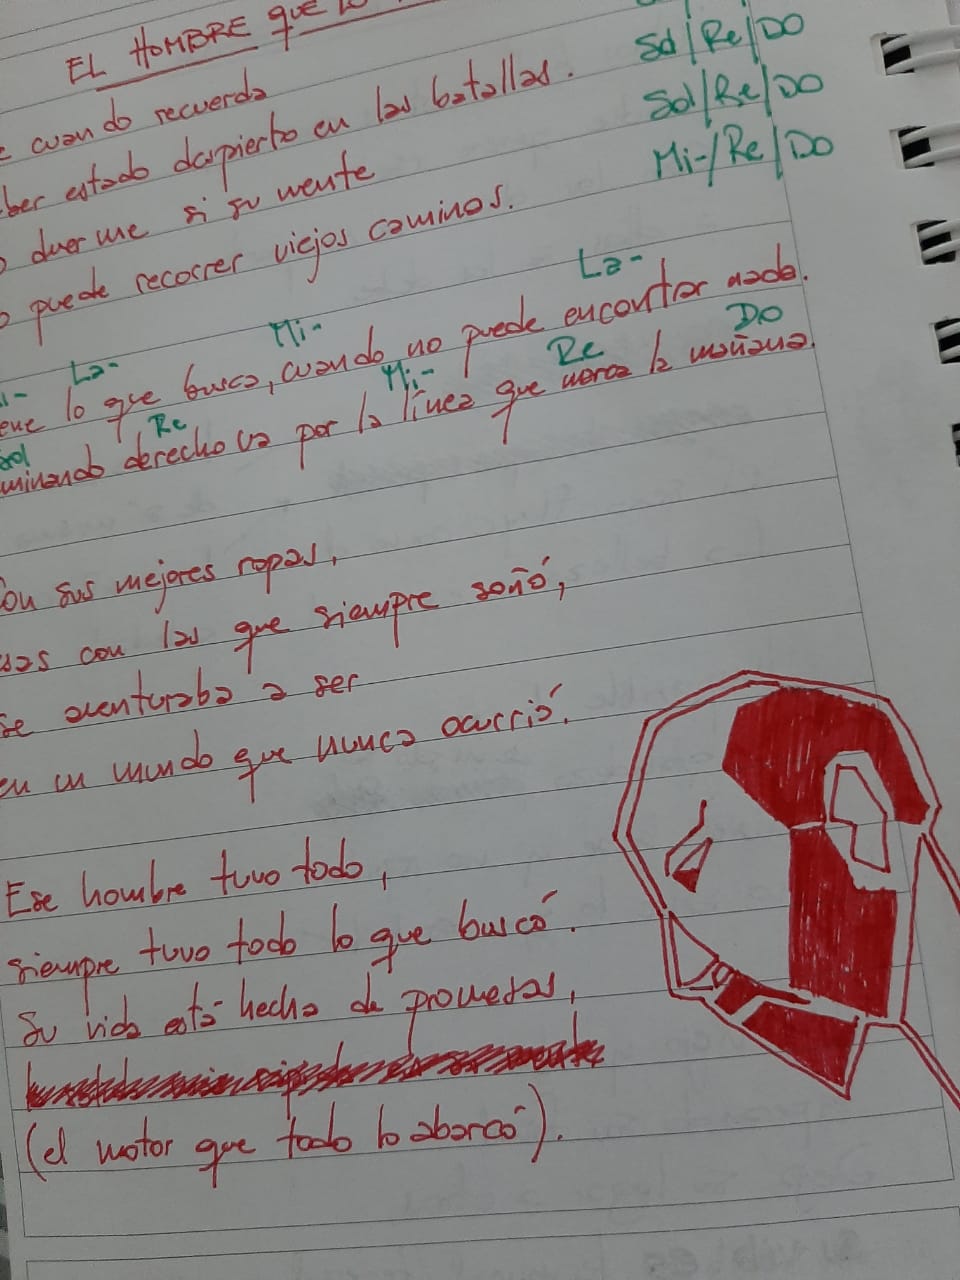 EL HOMBRE QUE
cuando recuerda
Sol/Re/DO
ber estado despierto en las batallas.
Sol/Re/DO
duerme si su mente
Mi-/Re/DO
puede recorrer viejos caminos.
La- Mi- La-
ene lo que busca, cuando no puede encontrar nada.
Sol Re Mi- Re DO
minando derecho va por la línea que marca la mañana.
Con sus mejores ropas,
sas con las que siempre soñó,
se aventuraba a ser
en un mundo que nunca ocurrió.
Ese hombre tuvo todo,
siempre tuvo todo lo que buscó.
Su vida está hecha de promesas,
(el motor que todo lo abarcó).